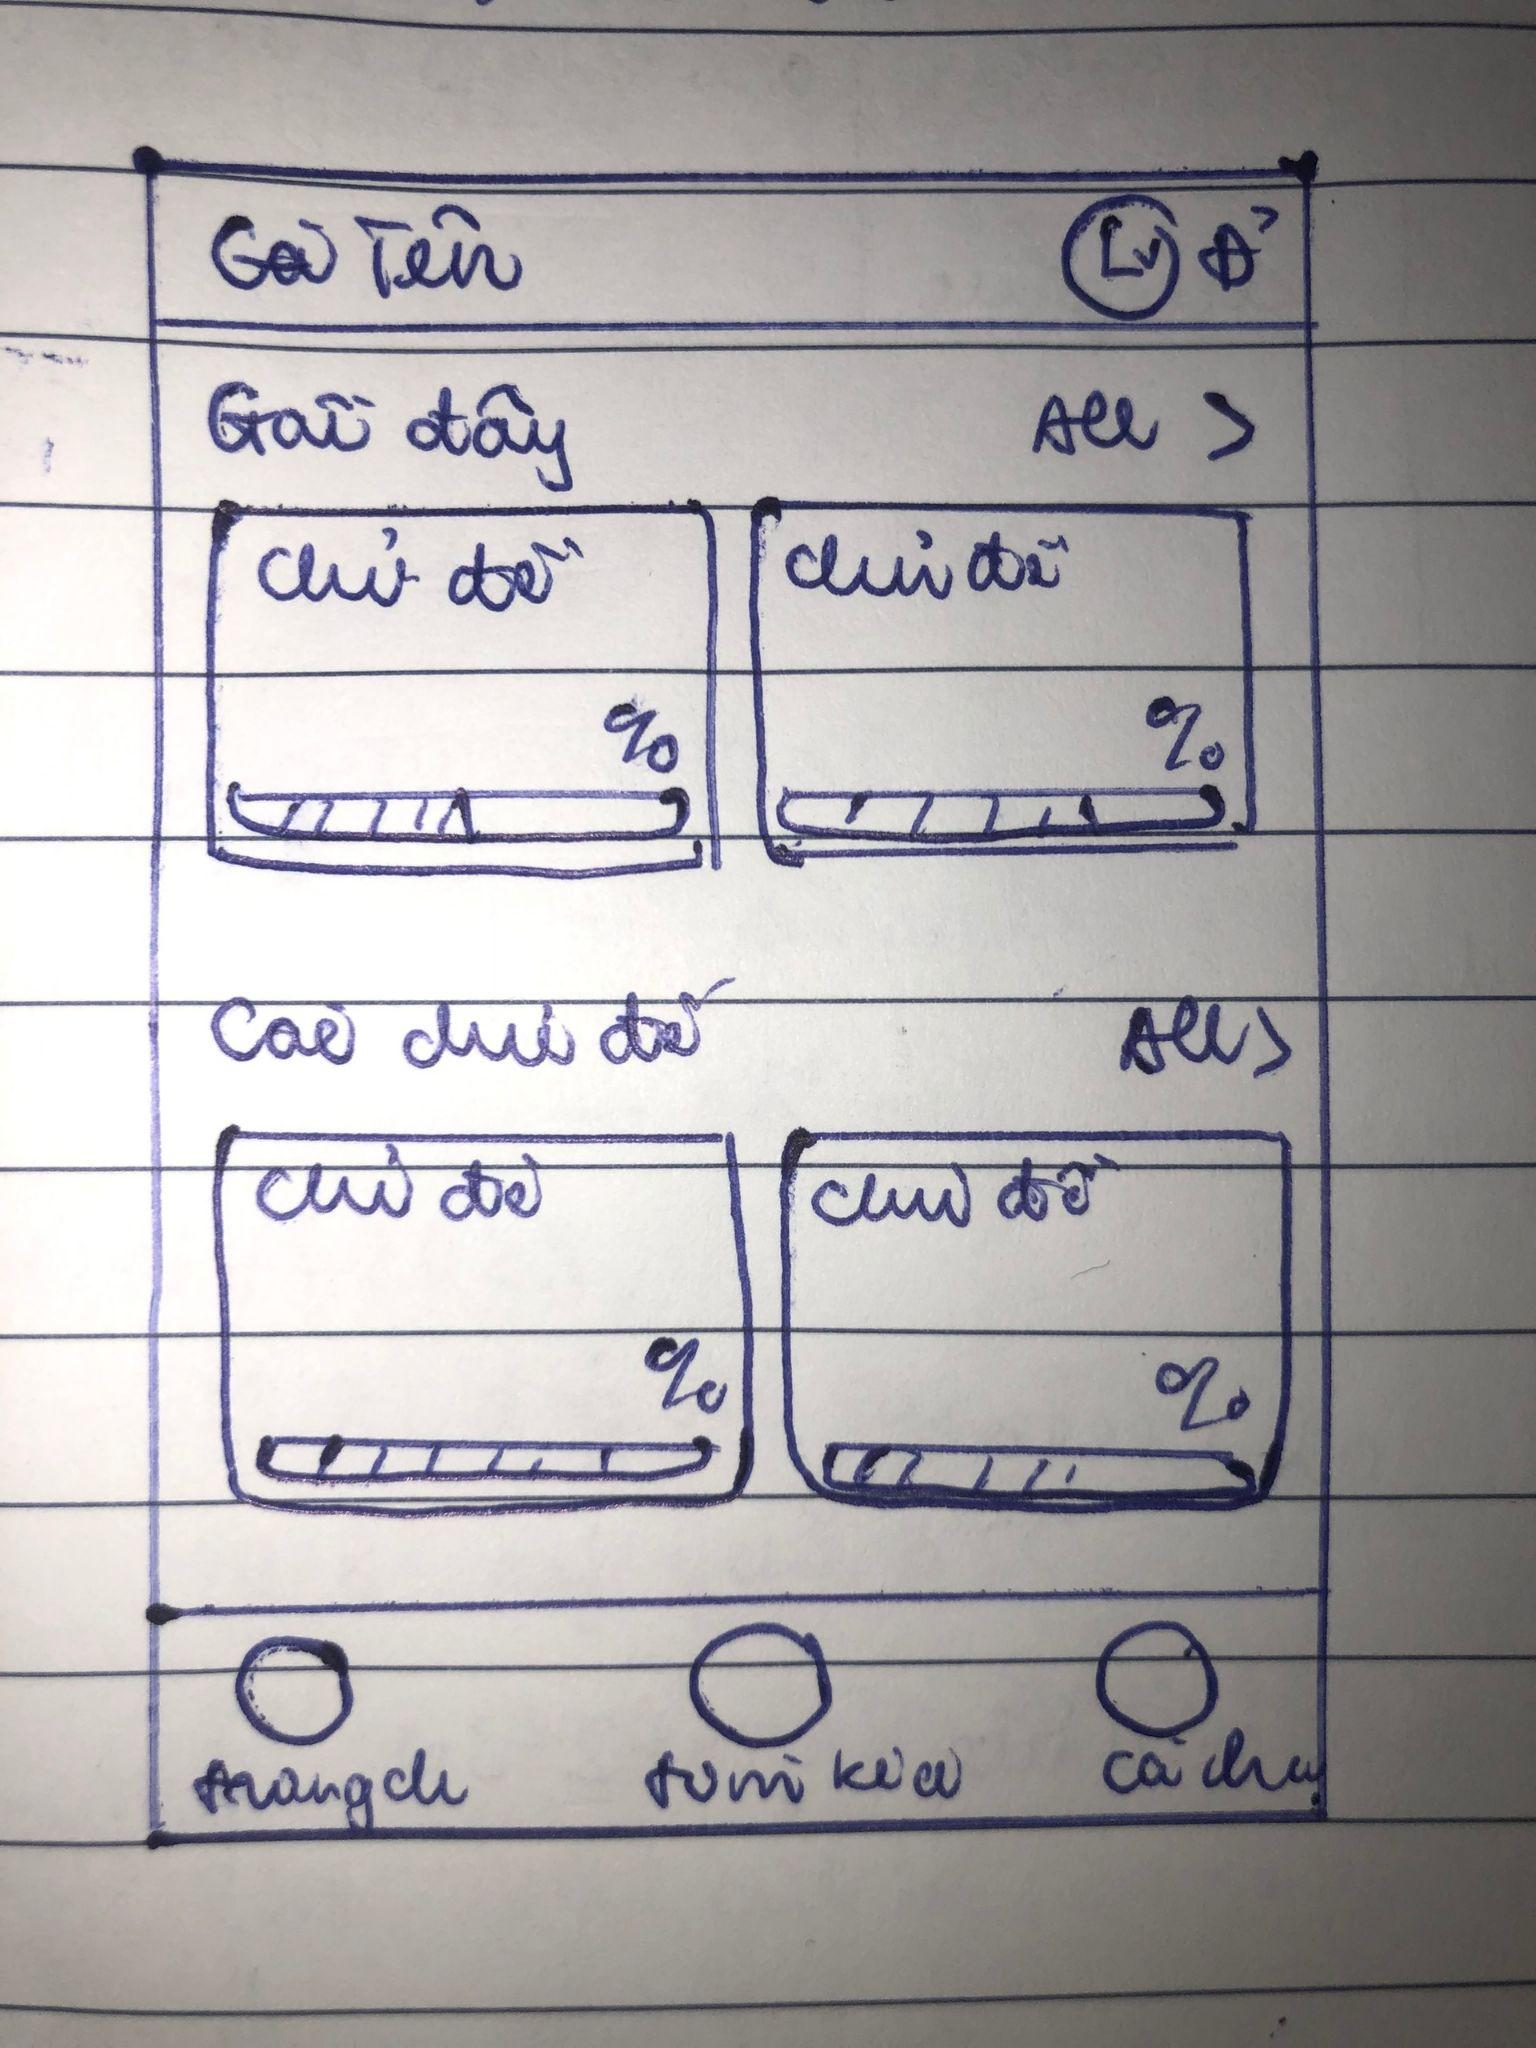 Gọi Tên Lv
Gần đây All >
chủ đề chủ đề
% %
Các chủ đề All >
chủ đề chủ đề
% %
trang ch tìm kiếm